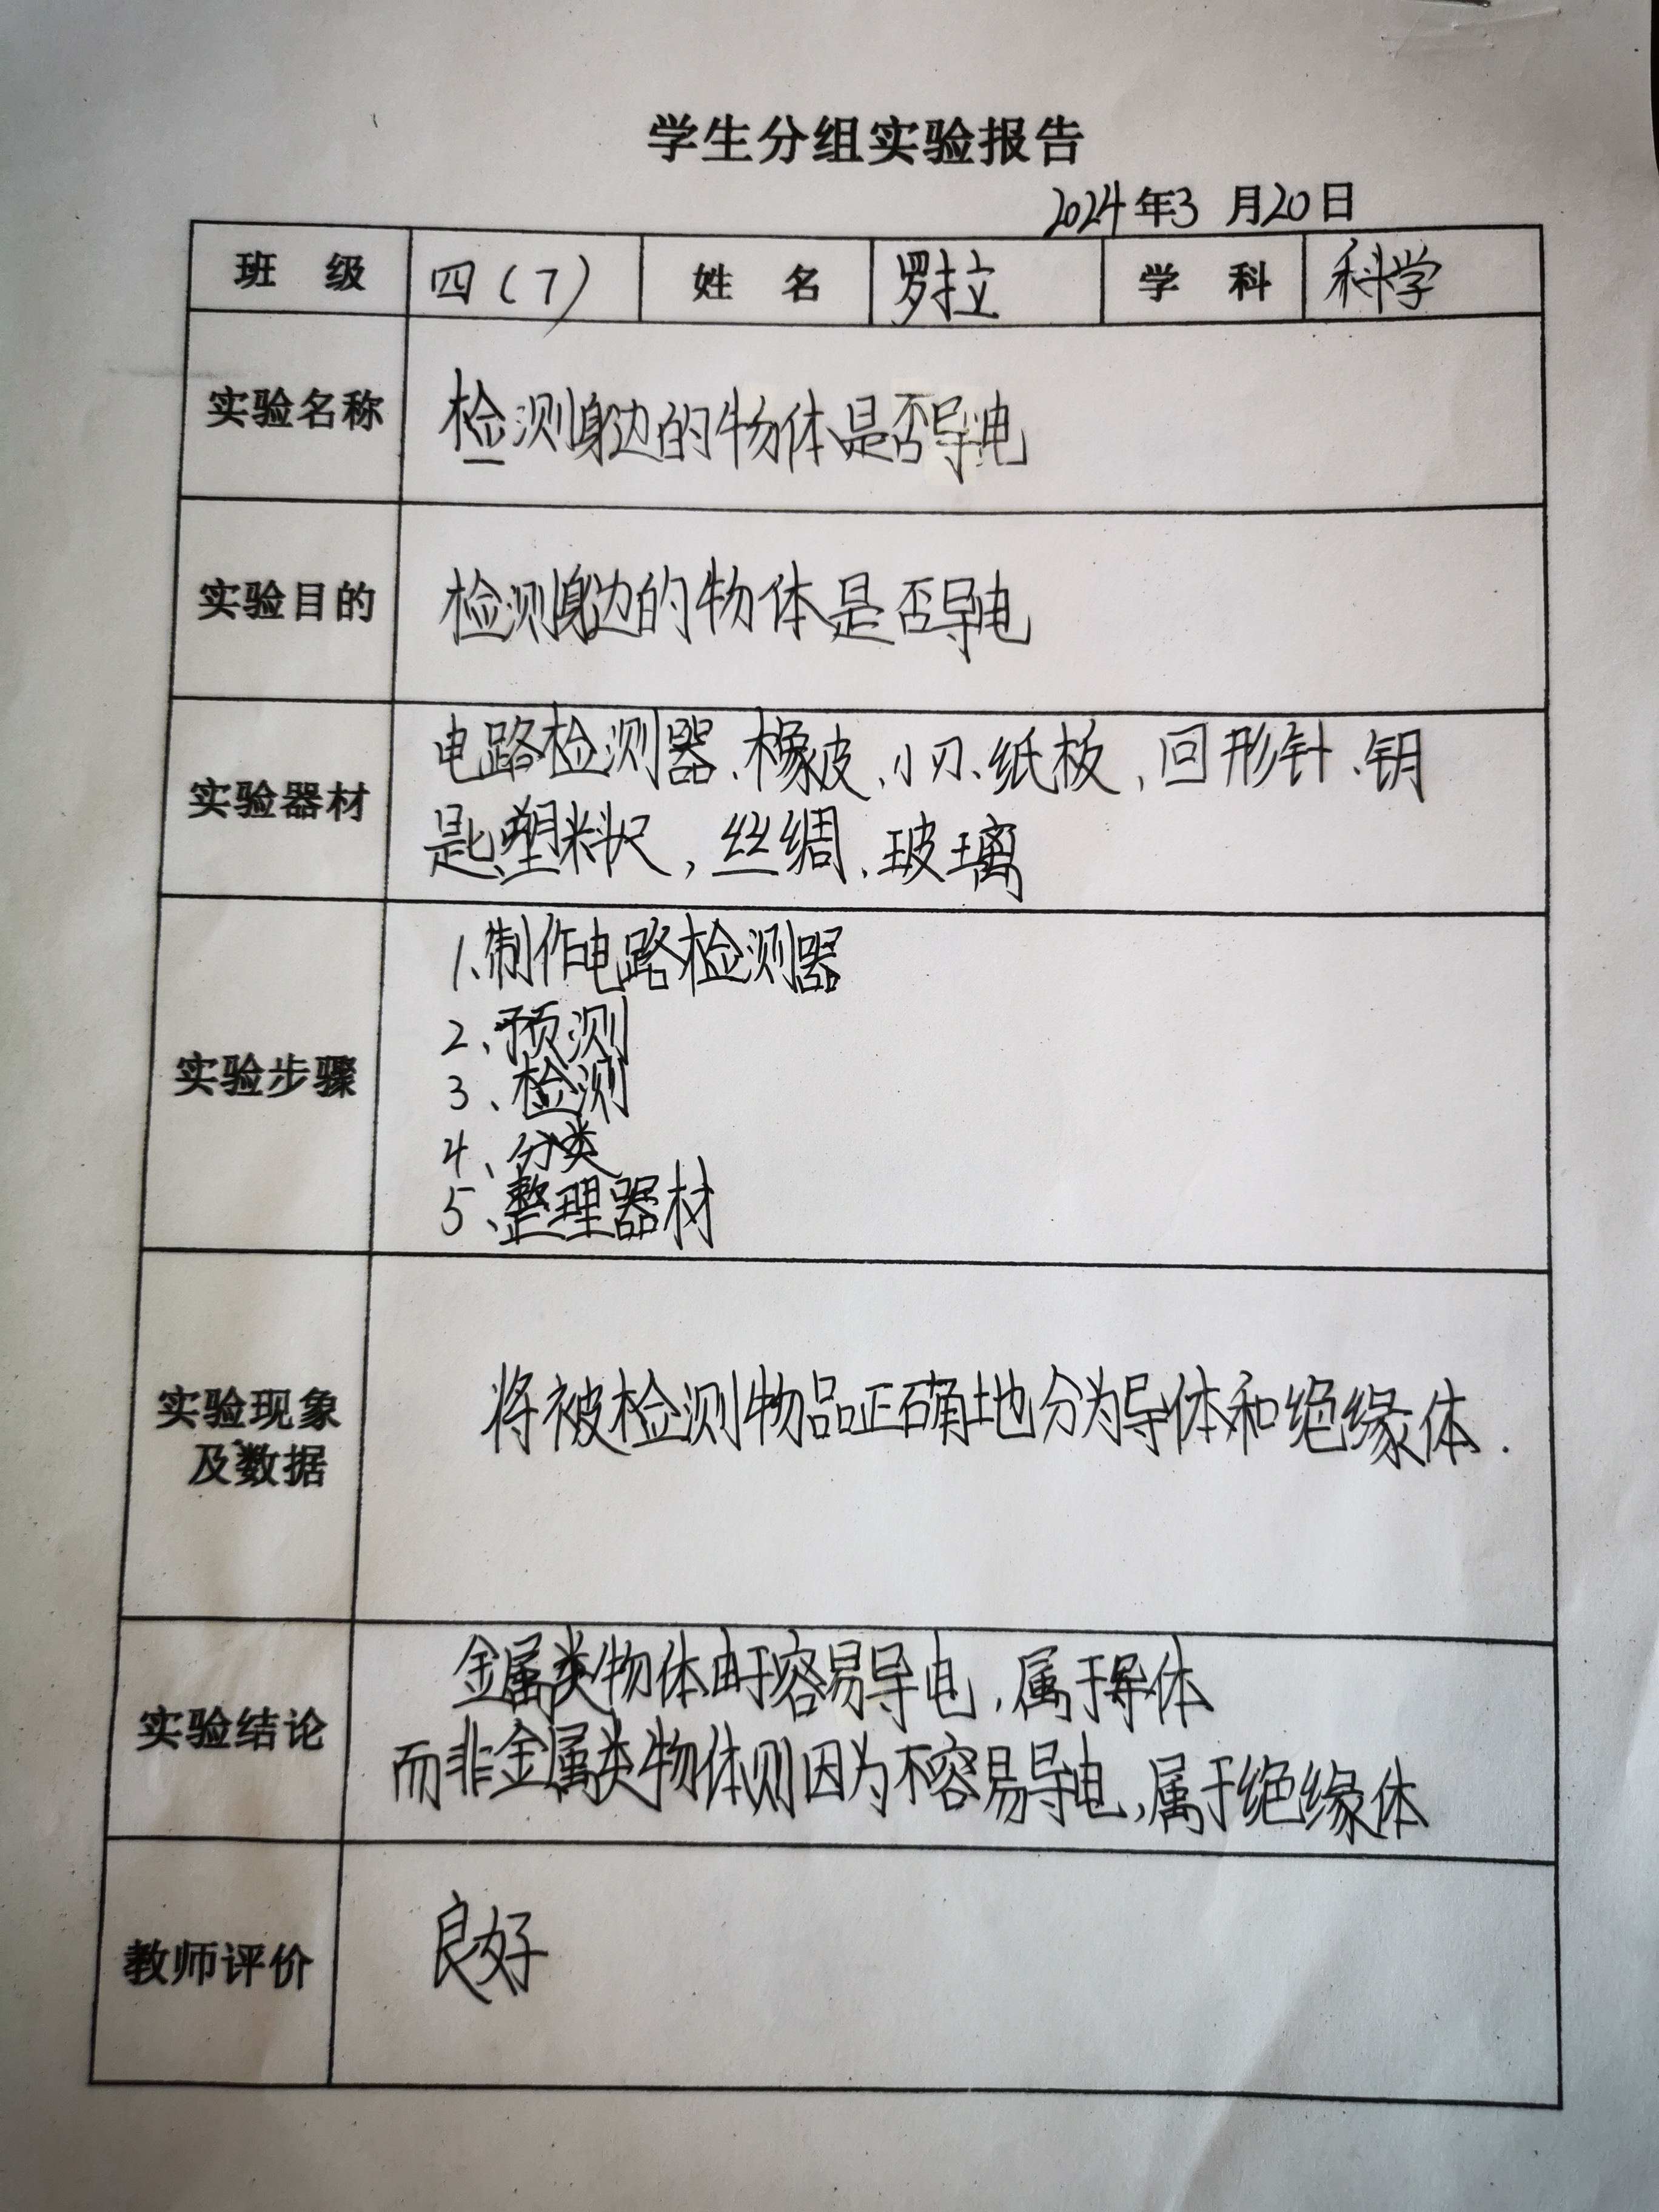 学生分组实验报告
2024年3月20日
班级 四(7) 姓名 罗拉 学科 科学
实验名称 检测身边的物体是否导电
实验目的 检测身边的物体是否导电
实验器材 电路检测器、橡皮、小刀、纸板、回形针、钥
匙、塑料尺,丝绸、玻璃
实验步骤 1、制作电路检测器
2、预测
3、检测
4、分类
5、整理器材
实验现象
及数据 将被检测物品正确地分为导体和绝缘体.
实验结论 金属类物体由于容易导电,属于导体
而非金属类物体则因为不容易导电,属于绝缘体
教师评价 良好